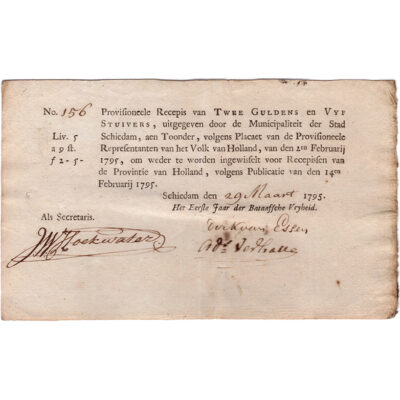 No. 156 Provisioneele Recepis van Twee Guldens en Vyf
Stuivers, uitgegeven door de Municipaliteit der Stad
Liv. 5 Schiedam, aen Toonder, volgens Placaet van de Provisioneele
a 9 st. Representanten van het Volk van Holland, van den 2den Februarij
f 2-5- 1795, om weder te worden ingewisselt voor Recepissen van
de Provintie van Holland, volgens Publicatie van den 14den
Februarij 1795.
Schiedam den 29 Maart 1795.
Het Eerste Jaar der Bataafsche Vryheid.
Als Secretaris.
Dirk van Essen
JW Hoekwater